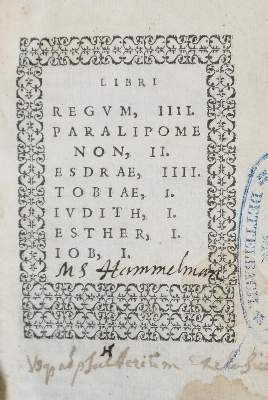 LIBRI
REGVM, IIII.
PARALIPOME
NON, II.
ESDRAE, IIII.
TOBIAE, I.
IVDITH, I.
ESTHER, I.
IOB, I.
MS Hammelman
H